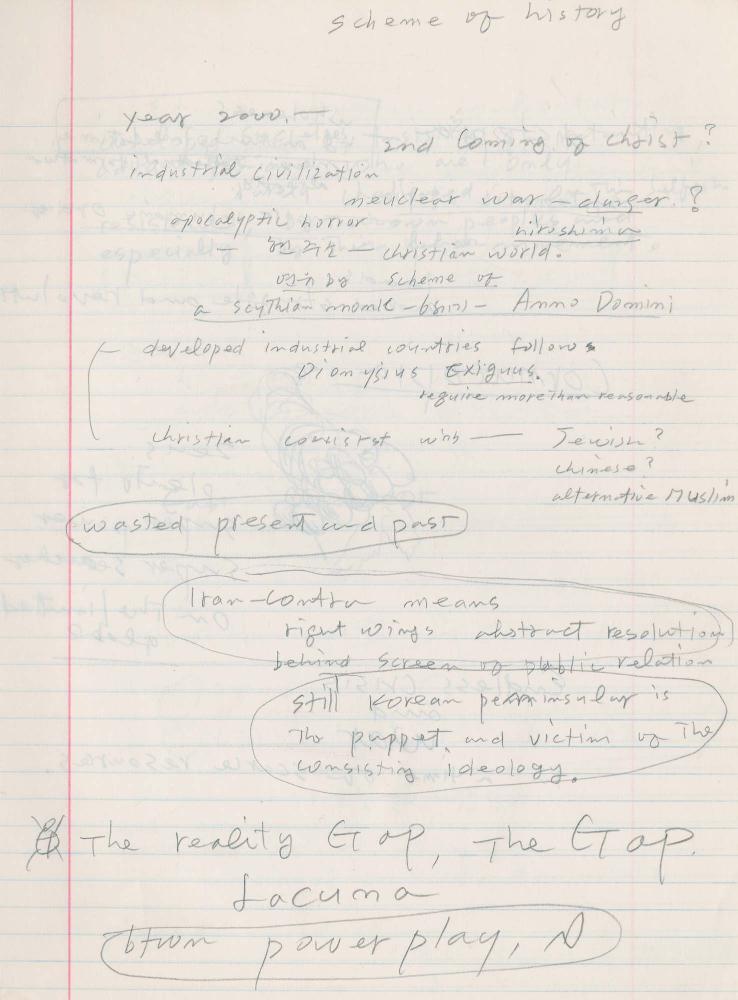 scheme of history
year 2000. —
2nd Coming of Christ ?
industrial civilization
neuclear war — danger ?
apocalyptic horror
hiroshima
— 현 주소 — christian world.
by scheme of
a scythian monk — 6세기 — Anno Domini
developed industrial countries follows
Dionysius Exiguus.
require more than reasonable
christian consist with — Jewish ?
chinese ?
alternative Muslim
wasted present and past
Iran-contra means
right wings abstract resolution
behind screen of public relation
still Korean penninsular is
The puppet, and victim of The
consisting ideology.
The reality Gap, The Gap.
Lacuna
btwn power play,